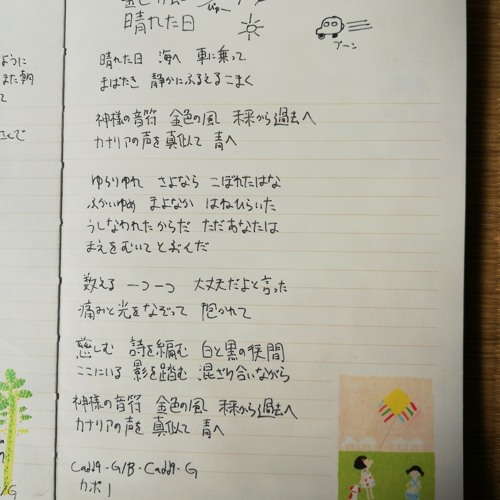 晴れた日
ブーン
晴れた日 海へ 車に乗って
まばたき 静かにふるえるこまく
神様の音符 金色の風 未来から過去へ
カナリアの声を真似て 青へ
ゆらりゆれ さよなら こぼれたはな
ふかいゆめ まよなか はねひらいた
うしなわれたからだ ただあなたは
まえをむいてとおんだ
数える 一つ一つ 大丈夫だよと言った
痛みと光をなぞって 抱かれて
慈しむ 詩を編む 白と黒の狭間
ここにいる 影を踏む 混ざり合いながら
神様の音符 金色の風 未来から過去へ
カナリアの声を真似て 青へ
Cadd9・G/B・Cadd9・G
カポ 1
ように
また朝
て
/G